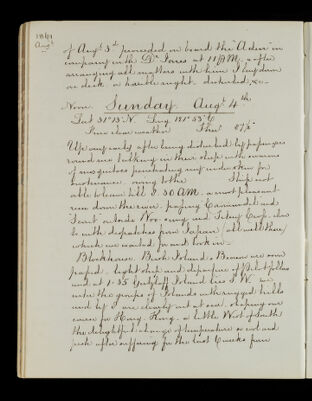 1861
Augt
of Augt 3d proceeded on board the "Aden" in
company with Dr Jones at 11 PM, after
arranging all matters with him I lay down
on deck a horrible night
Noon Sunday Augt 4th
Lat 31° 13' N. Long
Fine clear weather Ther 87½
Up very early after being disturbed by passengers
round me talking in their sleep with swarms
of mosquitoes penetrating my under skin for
sustenance owing to the Ship not
able to leave till 8 30 AM. a most pleasant
run down the river passing
outside Woosung and close
to with despatches from Japan all well there,
which we waited for and took in
Blockhouse, Bush Island, Beacon we soon
passed. Light ship and departure of Pilot follow
and at 1.35 Gutzlaff Island lies S.W. we
enter the groups of Islands with rugged hills
and by 5 are clearly out at sea shaping our
course for Hong Kong - a little West of South
the delightful change of temperature so cool and
fresh after suffering for the last 6 weeks from